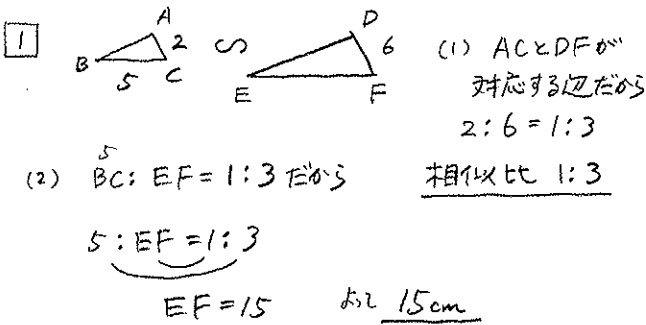 1
A
B
2
5
C
∽
D
6
E
F
(1) ACとDFが
対応する辺だから
2:6=1:3
相似比 1:3
(2) BC:EF=1:3だから
5
5:EF=1:3
EF=15
よって 15cm